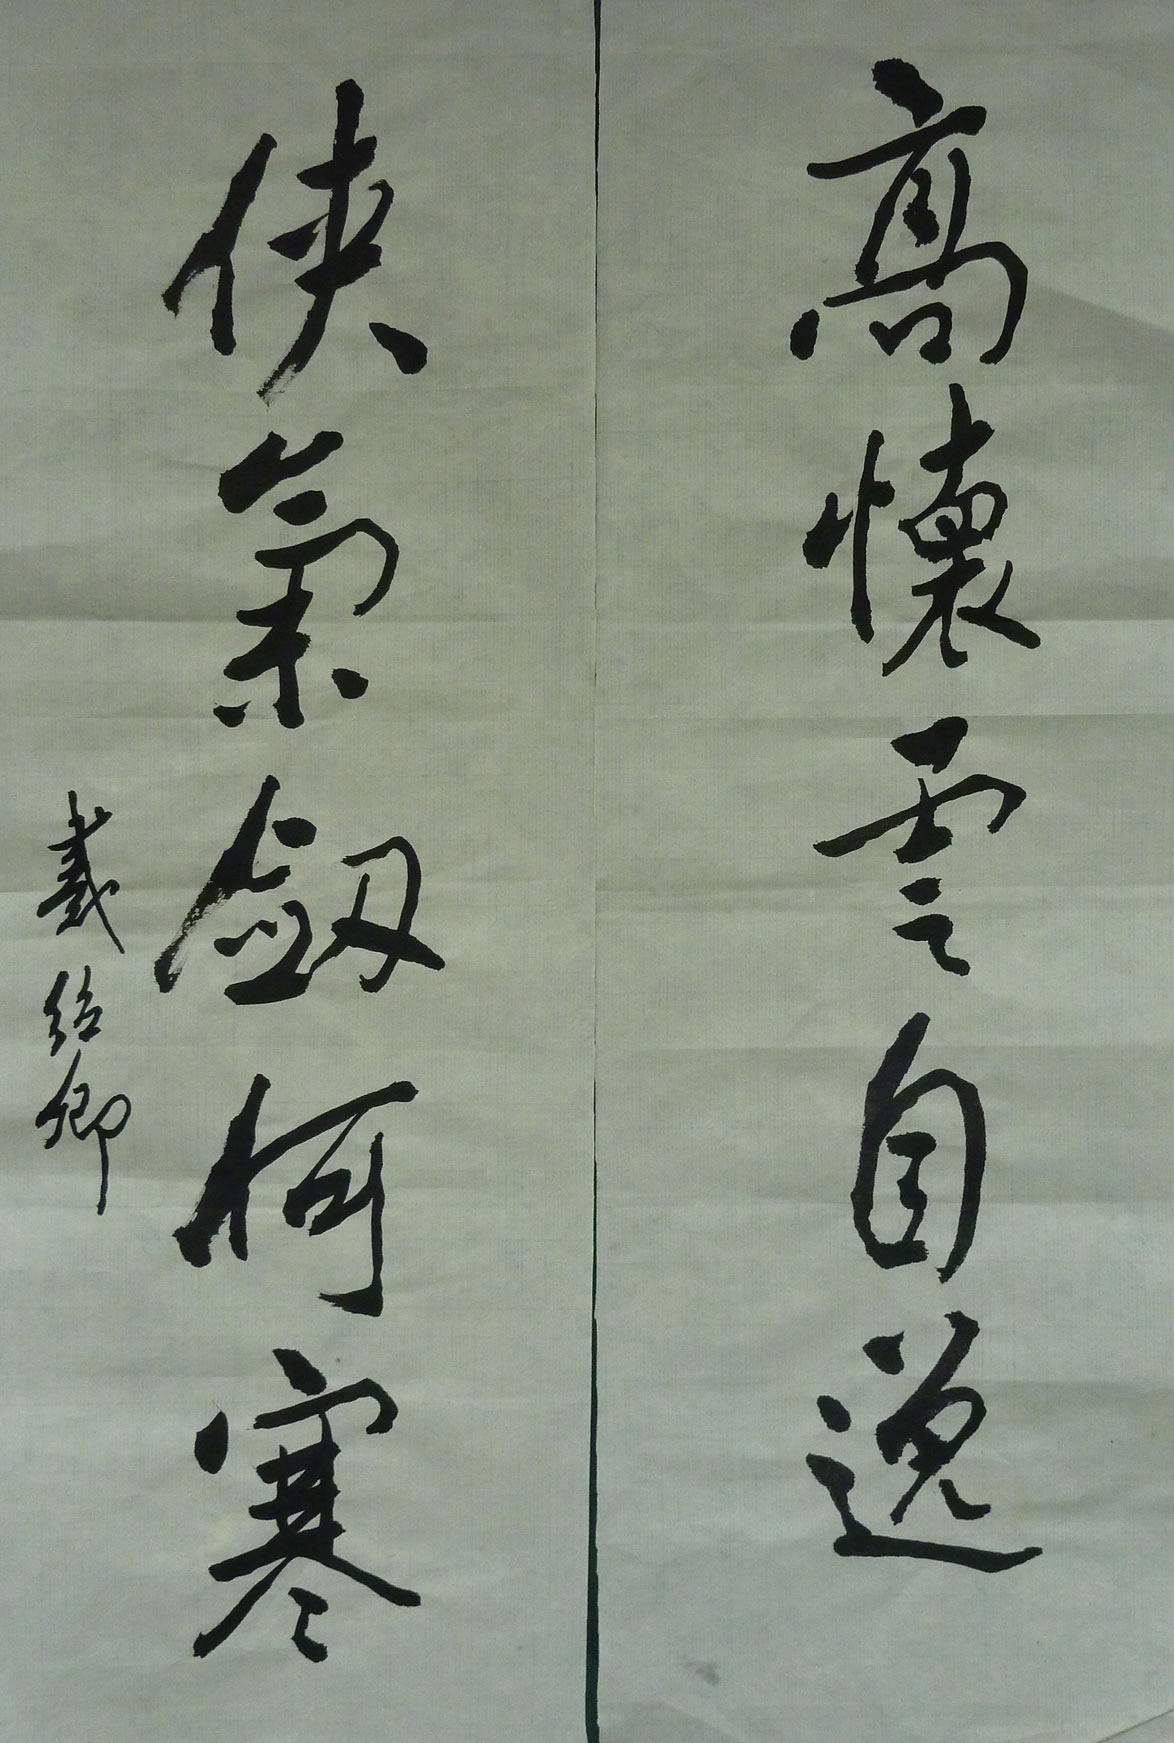 高懷雲自逸
俠氣劔何寒
戴紹卿